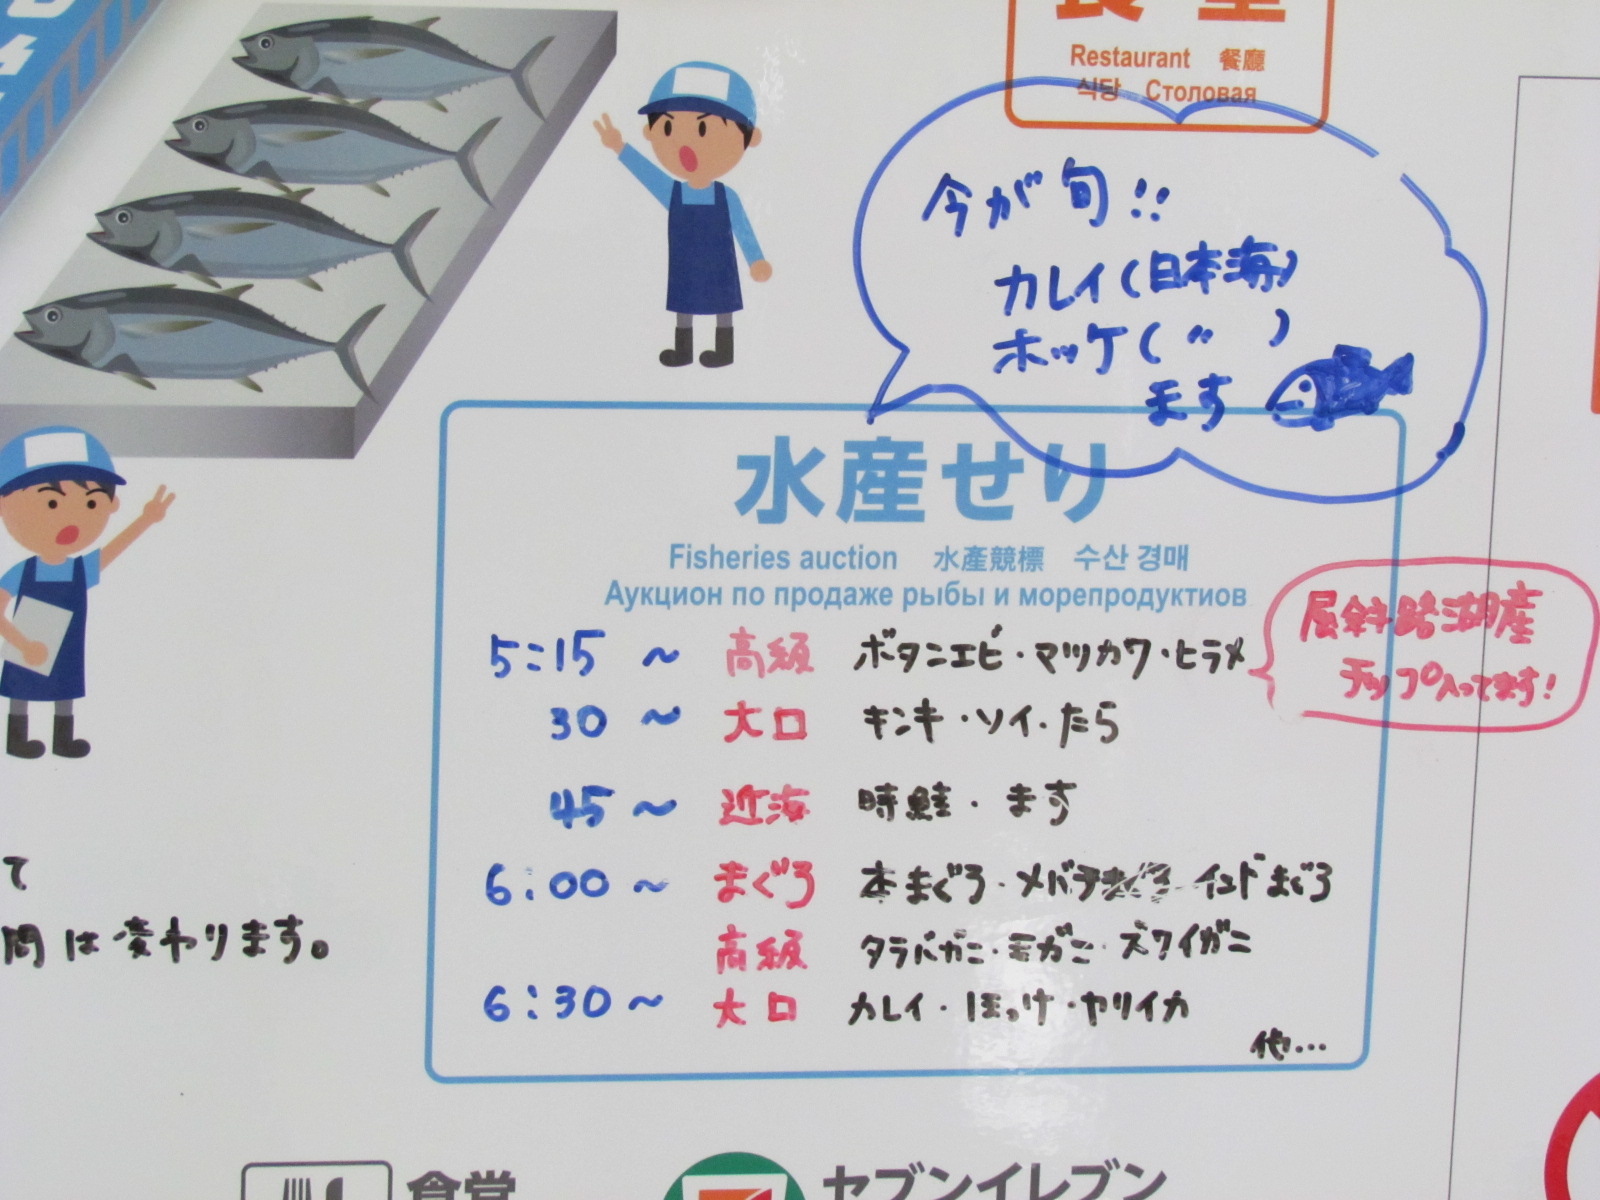 食堂
Restaurant 餐廳
식당 Столовая
今が旬!!
カレイ(日本海)
ホッケ( 〃 )
ます
水産せり
Fisheries auction 水產競標 수산 경매
Аукцион по продаже рыбы и морепродуктиов
5:15 ~ 高級 ボタンエビ・マツカワ・ヒラメ
屈斜路湖産
チップ入ってます!
30 ~ 大口 キンキ・ソイ・たら
45 ~ 近海 時鮭・ます
6:00 ~ まぐろ 本まぐろ・メバチまぐろ インドまぐろ
高級 タラバガニ・毛ガニ・ズワイガニ
6:30 ~ 大口 カレイ・ほっけ・ヤリイカ
他…
て
間は変わります。
食堂
セブンイレブン